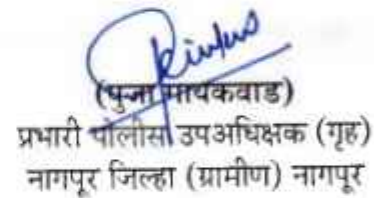 (पुजा गायकवाड)
प्रभारी पोलीस उपअधिक्षक (गृह)
नागपूर जिल्हा (ग्रामीण) नागपूर